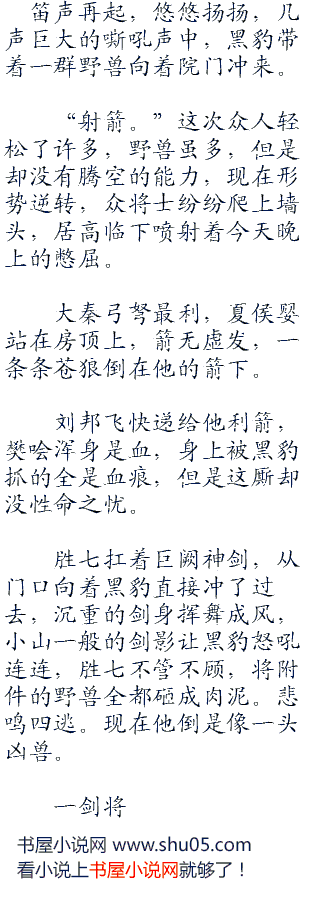 笛声再起，悠悠扬扬，几
声巨大的嘶吼声中，黑豹带
着一群野兽向着院门冲来。
“射箭。”这次众人轻
松了许多，野兽虽多，但是
却没有腾空的能力，现在形
势逆转，众将士纷纷爬上墙
头，居高临下喷射着今天晚
上的憋屈。
大秦弓弩最利，夏侯婴
站在房顶上，箭无虚发，一
条条苍狼倒在他的箭下。
刘邦飞快递给他利箭，
樊哙浑身是血，身上被黑豹
抓的全是血痕，但是这厮却
没性命之忧。
胜七扛着巨阙神剑，从
门口向着黑豹直接冲了过
去，沉重的剑身挥舞成风，
小山一般的剑影让黑豹怒吼
连连，胜七不管不顾，将附
件的野兽全都砸成肉泥。悲
鸣四逃。现在他倒是像一头
凶兽。
一剑将
书屋小说网 www.shu05.com
看小说上书屋小说网就够了！